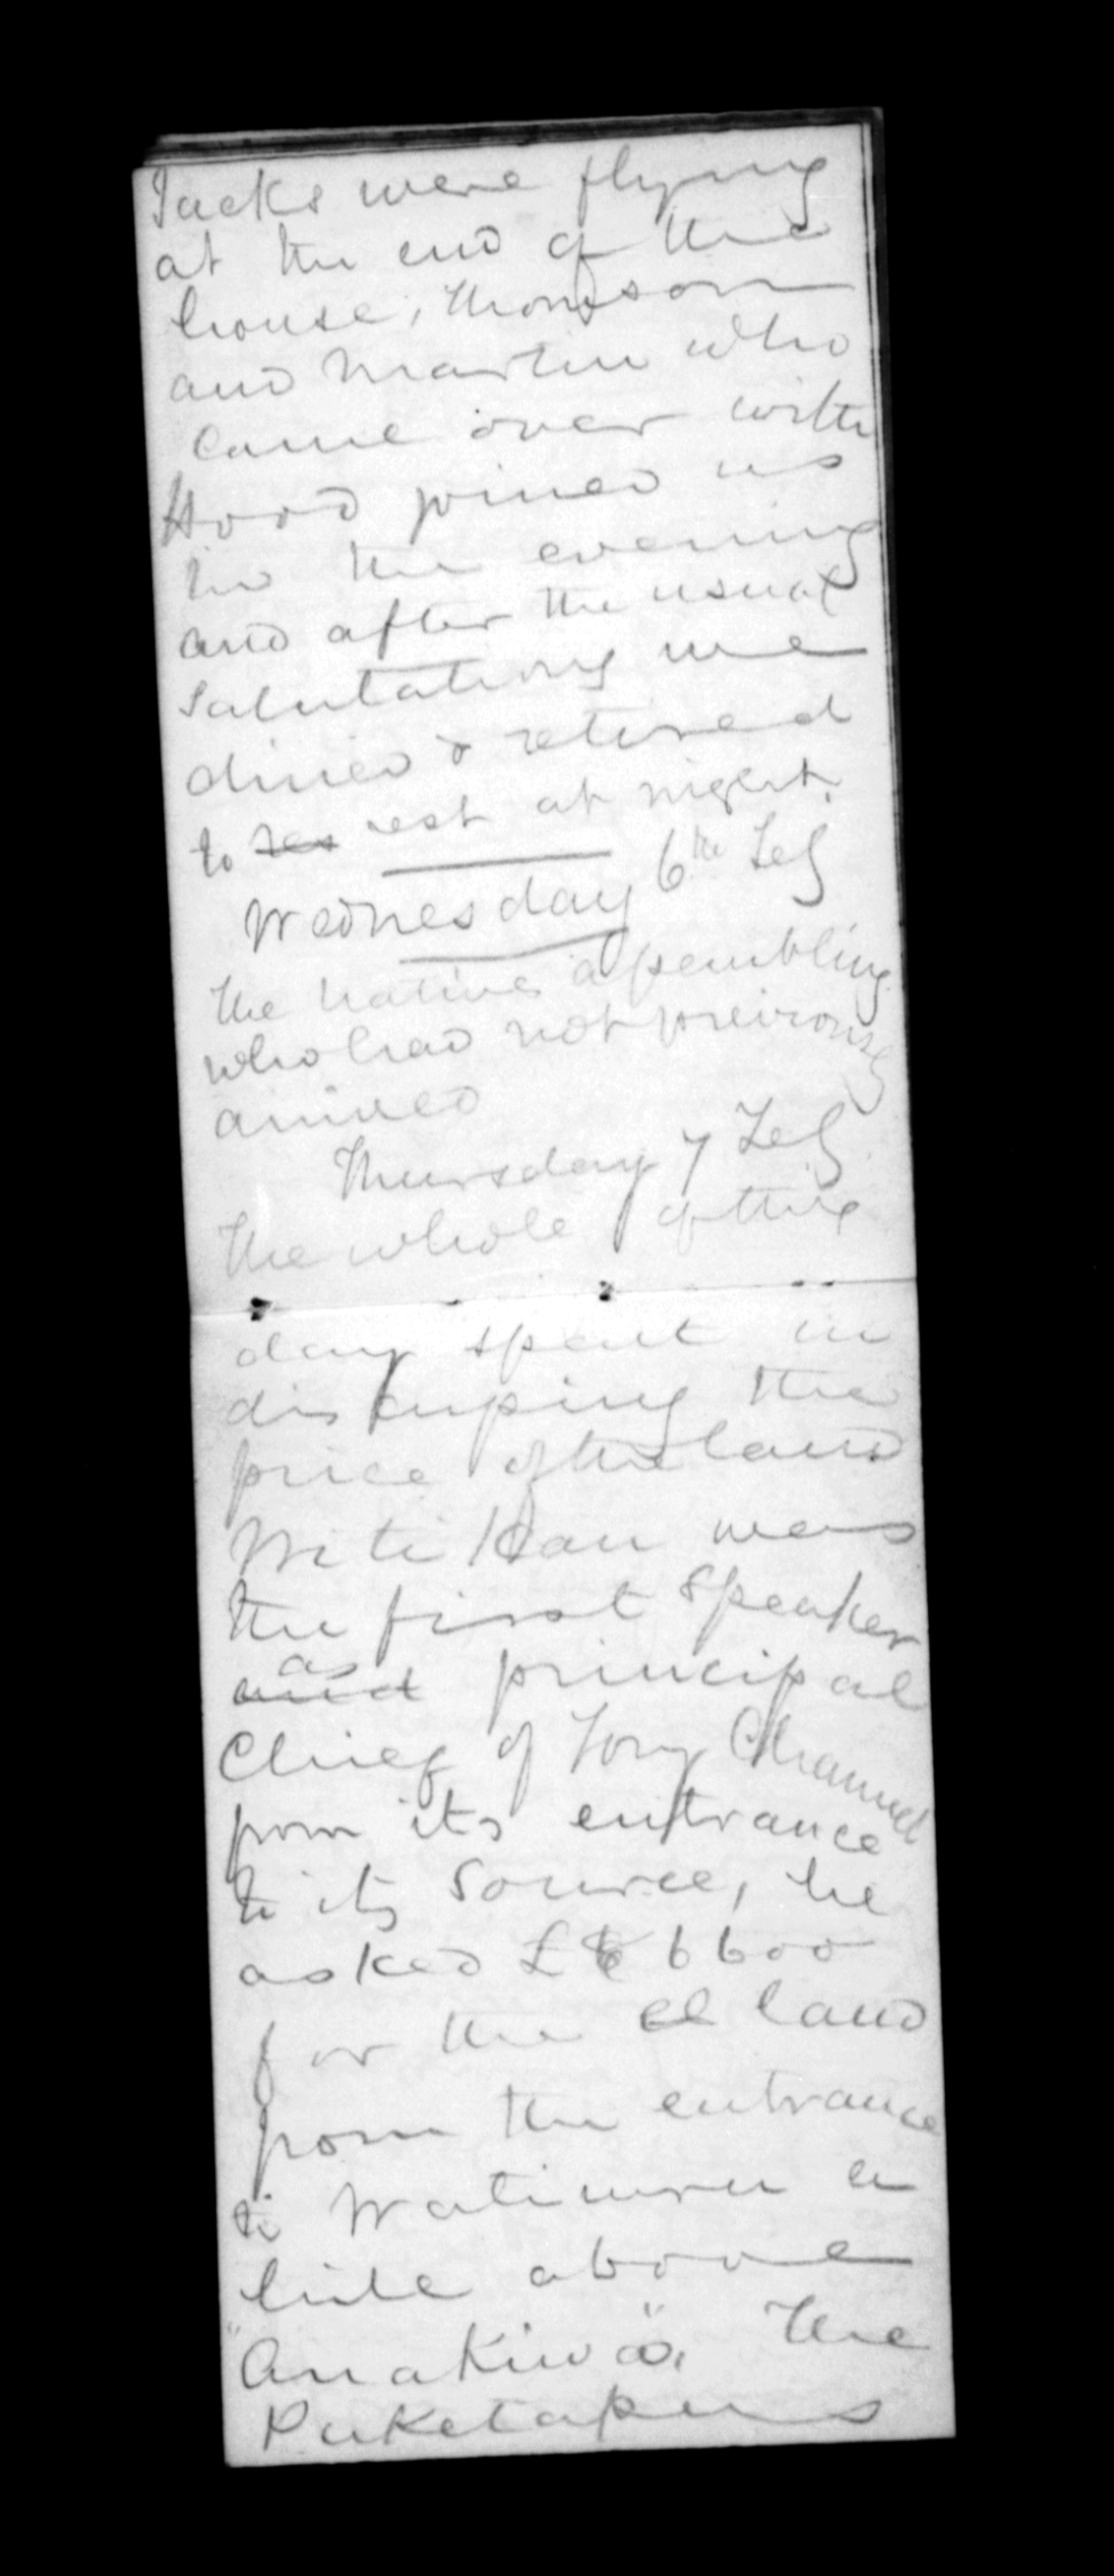 Jacks were flying
at the end of the
house, Thomson
and Martin who
came over with
Hood joined us
in the evening
and after the usual
salutations we
dined & retired
to res rest at night.
Wednesday 6th Feby
The natives assembling
who had not previously
arrived
Thursday 7 Feby
The whole of this
day spent in
discussing the
price of the land
Wi ti Kau was
the first speaker
and as principal
Chief of Tory Channel
from its entrance
to its source, he
asked £ 6600
for the land
from the entrance
to a
hill above
"Anakiwa". The
Puketapus